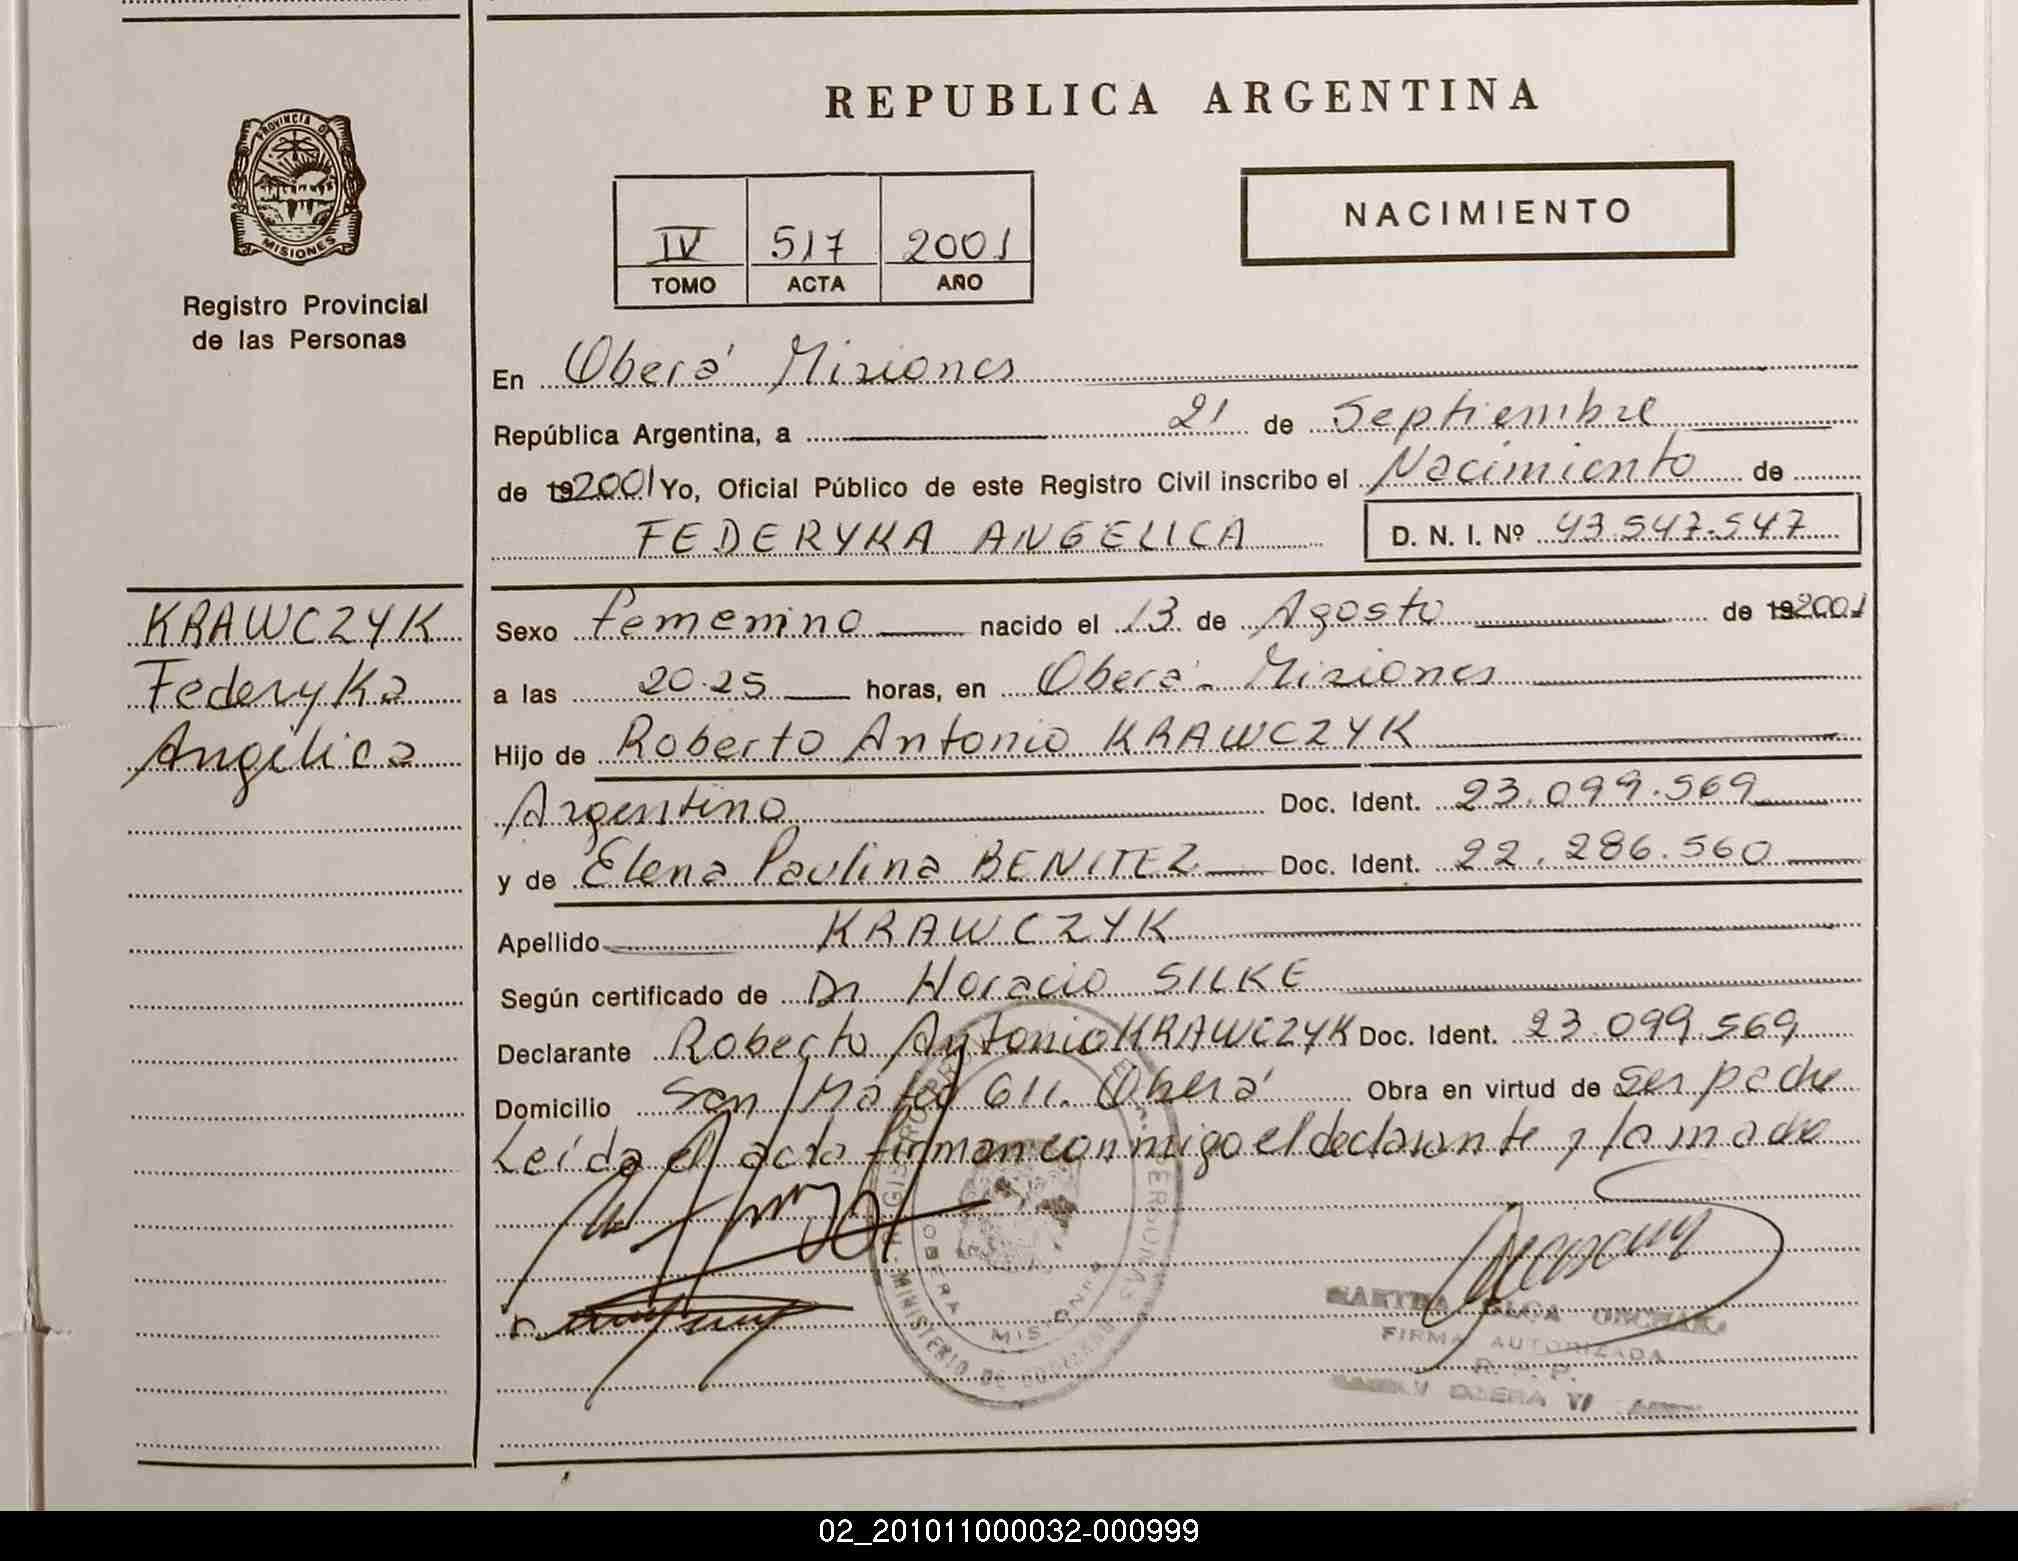 REPUBLICA ARGENTINA
PROVINCIA DE
MISIONES
Registro Provincial
de las Personas
IV 517 2001
TOMO ACTA AÑO
NACIMIENTO
En Oberá Misiones
República Argentina, a 21 de Septiembre
de 192001 Yo, Oficial Público de este Registro Civil inscribo el Nacimiento de
FEDERYKA ANGELICA D. N. I. Nº 43.547.547
KRAWCZYK
Federyka
Angélica
Sexo femenino nacido el 13 de Agosto de 192001
a las 20.25 horas, en Oberá - Misiones
Hijo de Roberto Antonio KRAWCZYK
Argentino Doc. Ident. 23.099.569
y de Elena Paulina BENITEZ Doc. Ident. 22.286.560
Apellido KRAWCZYK
Según certificado de Dr Horacio SILKE
Declarante Roberto Antonio KRAWCZYK Doc. Ident. 23.099.569
Domicilio San Mateo 611. Oberá Obra en virtud de ser padre
Leída el acta firman conmigo el declarante y la madre
OBERA MISIONES
MINISTERIO DE GOBIERNO
FIRMA AUTORIZADA
R. P. P.
OBERA
02_201011000032-000999